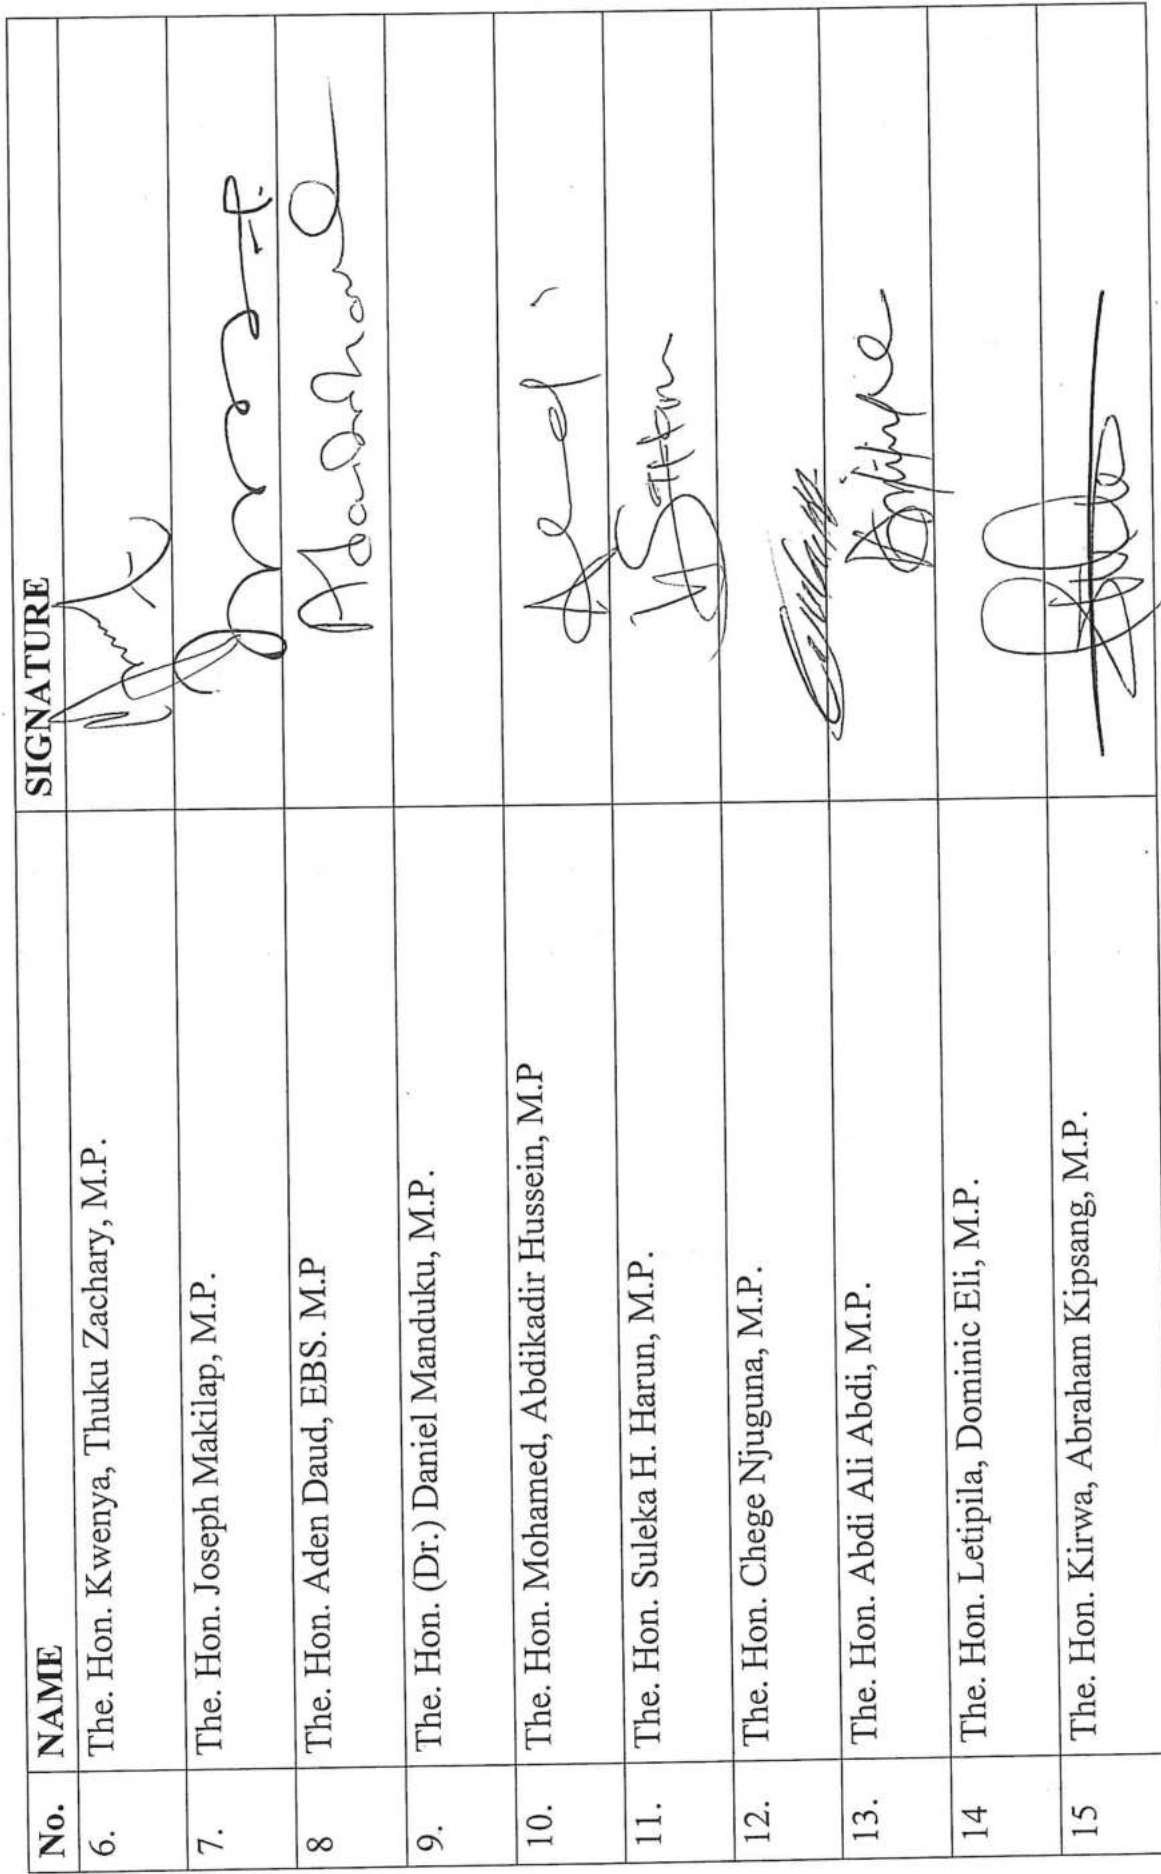 No. NAME SIGNATURE
6. The. Hon. Kwenya, Thuku Zachary, M.P.
7. The. Hon. Joseph Makilap, M.P.
8 The. Hon. Aden Daud, EBS. M.P
9. The. Hon. (Dr.) Daniel Manduku, M.P.
10. The. Hon. Mohamed, Abdikadir Hussein, M.P
11. The. Hon. Suleka H. Harun, M.P.
12. The. Hon. Chege Njuguna, M.P.
13. The. Hon. Abdi Ali Abdi, M.P.
14 The. Hon. Letipila, Dominic Eli, M.P.
15 The. Hon. Kirwa, Abraham Kipsang, M.P.